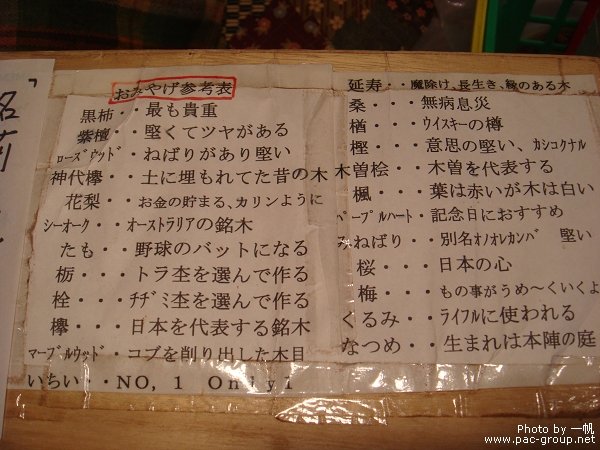 おみやげ参考表
黒柿・・最も貴重
紫檀・・・堅くてツヤがある
ﾛｰｽﾞｳｯﾄﾞ・ねばりがあり堅い
神代欅・・土に埋もれてた昔の木
花梨・・・お金の貯まる、カリンように
ｼｰｵｰｸ・・ｵｰｽﾄﾗﾘｱの銘木
たも・・野球のバットになる
栃・・・トラ杢を選んで作る
栓・・・ﾁﾁﾞﾐ杢を選んで作る
欅・・・日本を代表する銘木
ﾏｰﾌﾞﾙｳｯﾄﾞ・コブを削り出した木目
いちい・・NO,1 Only1
延寿・・魔除け、長生き、縁のある木
桑・・・無病息災
楢・・・ｳｲｽｷｰの樽
樫・・・意思の堅い、ｶｼｺｸﾅﾙ
木曽桧・・木曽を代表する
楓・・・葉は赤いが木は白い
ﾍﾟｰﾌﾟﾙﾊｰﾄ・記念日におすすめ
みねばり・・別名ｵﾉｵﾚｶﾝﾊﾞ 堅い
桜・・・日本の心
梅・・・もの事がうめ〜くいくよ
くるみ・・ﾗｲﾌﾙに使われる
なつめ・・生まれは本陣の庭
Photo by 一帆
www.pac-group.net